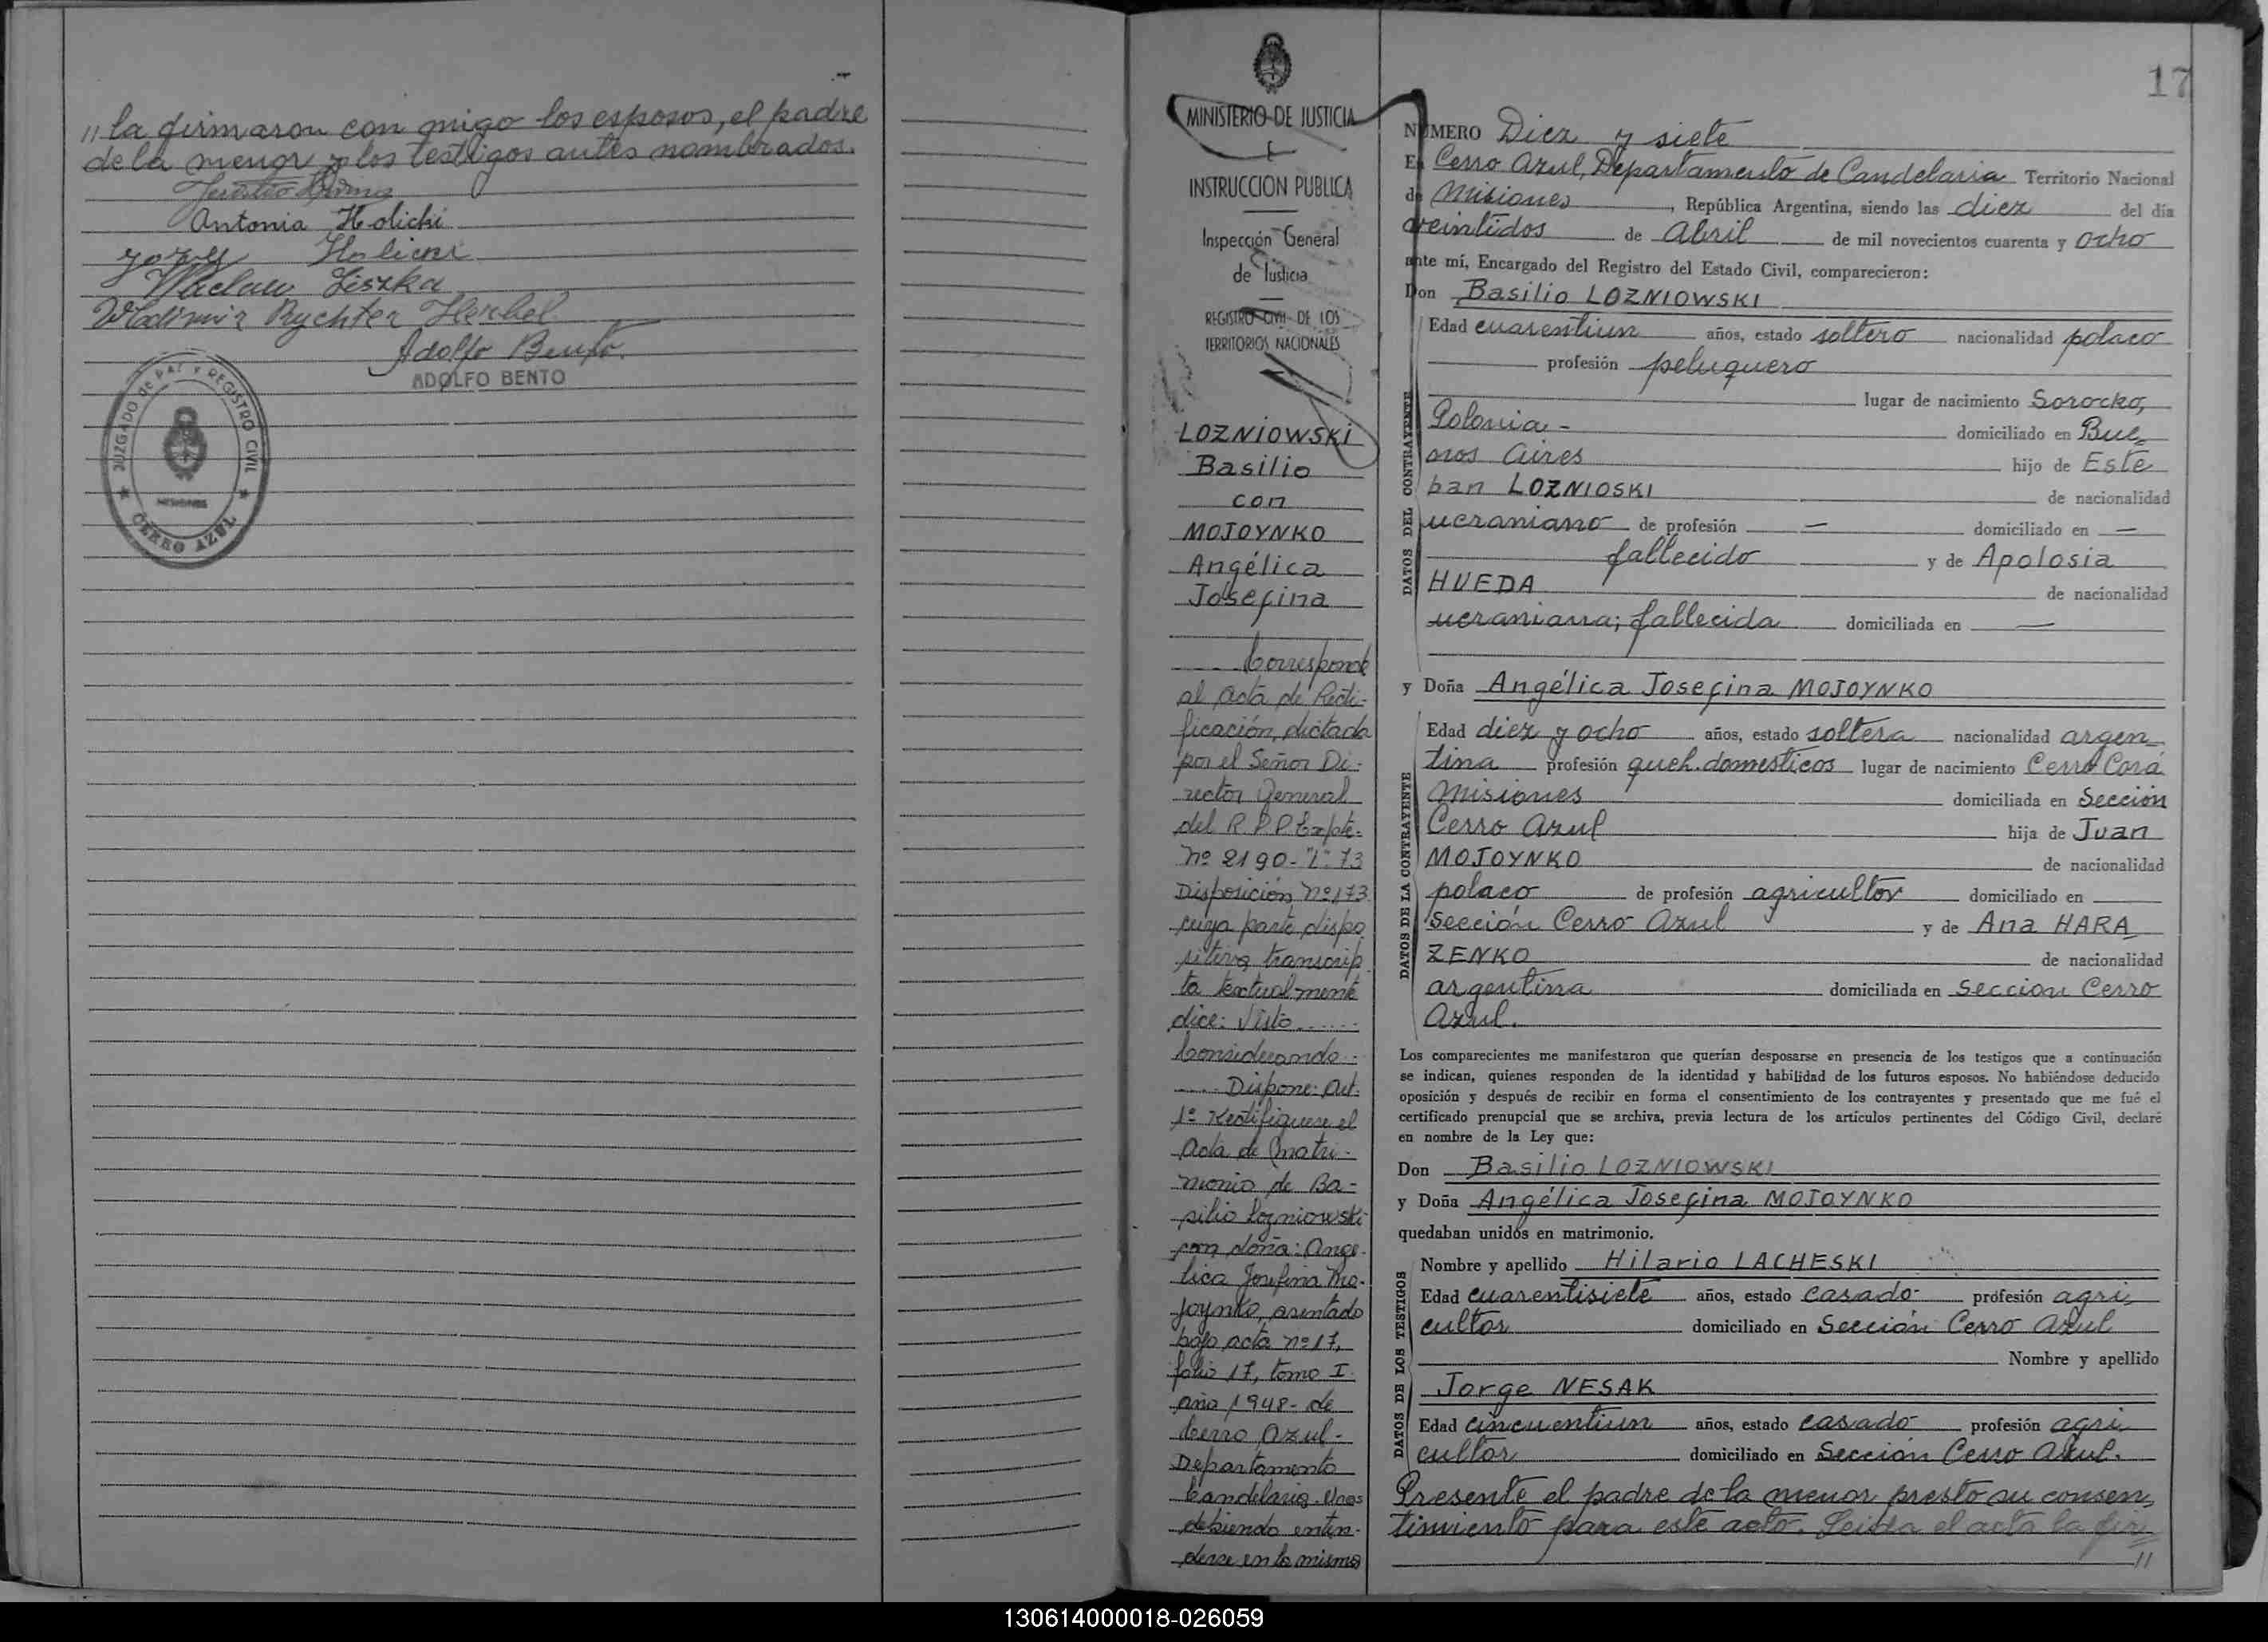 // la firmaron con migo los esposos, el padre
de la menor y los testigos antes nombrados.
Antonia Holichi
Waclaw Liszka
Wladimir Rychter Henhel
Adolfo Bento
ADOLFO BENTO
JUZGADO DE PAZ Y REGISTRO CIVIL
MISIONES
CERRO AZUL
MINISTERIO DE JUSTICIA
E
INSTRUCCION PUBLICA
Inspección General
de Justicia
REGISTRO CIVIL DE LOS
TERRITORIOS NACIONALES
LOZNIOWSKI
Basilio
con
MOJOYNKO
Angélica
Josefina
Corresponde
al acta de Recti-
ficación, dictada
por el Señor Di-
rector General
del R.P.P. Expte.
nº 2190-"L"-73
Disposición nº 173
cuya parte dispo
sitiva transcrip
ta textualmente
dice: Visto......
Considerando -
..... Dispone: Art.
1º Rectifiquese el
Acta de Matri-
monio de Ba-
silio Lozniowski
con doña: Ange-
lica Josefina Mo-
joynko, asentado
bajo acta nº 17,
folio 17, tomo I
año 1948 - de
Cerro Azul -
Departamento
Candelaria. Mnes
debiendo enten-
derse en la misma
17
NUMERO Diez y siete
En Cerro Azul, Departamento de Candelaria Territorio Nacional
de Misiones, República Argentina, siendo las diez del día
veintidos de Abril de mil novecientos cuarenta y ocho
ante mí, Encargado del Registro del Estado Civil, comparecieron:
Don Basilio LOZNIOWSKI
DATOS DEL CONTRAYENTE
Edad cuarentiun años, estado soltero nacionalidad polaco
profesión peluquero
lugar de nacimiento Sorocko,
Polonia - domiciliado en Bue-
nos Aires hijo de Este
ban LOZNIOSKI de nacionalidad
ucraniano de profesión — domiciliado en —
fallecido y de Apolosia
HUEDA de nacionalidad
ucraniana; fallecida domiciliada en —
y Doña Angélica Josefina MOJOYNKO
DATOS DE LA CONTRAYENTE
Edad diez y ocho años, estado soltera nacionalidad argen-
tina profesión queh. domesticos lugar de nacimiento Cerro Corá
Misiones domiciliada en Sección
Cerro Azul hija de Juan
MOJOYNKO de nacionalidad
polaco de profesión agricultor domiciliado en
Sección Cerro Azul y de Ana HARA
ZENKO de nacionalidad
argentina domiciliada en Sección Cerro
Azul.
Los comparecientes me manifestaron que querían desposarse en presencia de los testigos que a continuación
se indican, quienes responden de la identidad y habilidad de los futuros esposos. No habiéndose deducido
oposición y después de recibir en forma el consentimiento de los contrayentes y presentado que me fué el
certificado prenupcial que se archiva, previa lectura de los artículos pertinentes del Código Civil, declaré
en nombre de la Ley que:
Don Basilio LOZNIOWSKI
y Doña Angélica Josefina MOJOYNKO
quedaban unidos en matrimonio.
DATOS DE LOS TESTIGOS
Nombre y apellido Hilario LACHESKI
Edad cuarentisiete años, estado casado profesión agri-
cultor domiciliado en Sección Cerro Azul
Nombre y apellido
Jorge NESAK
Edad cincuentiun años, estado casado profesión agri
cultor domiciliado en Sección Cerro Azul.
Presente el padre de la menor presto su consen-
timiento para este acto. Leida el acta la fir
//
130614000018-026059